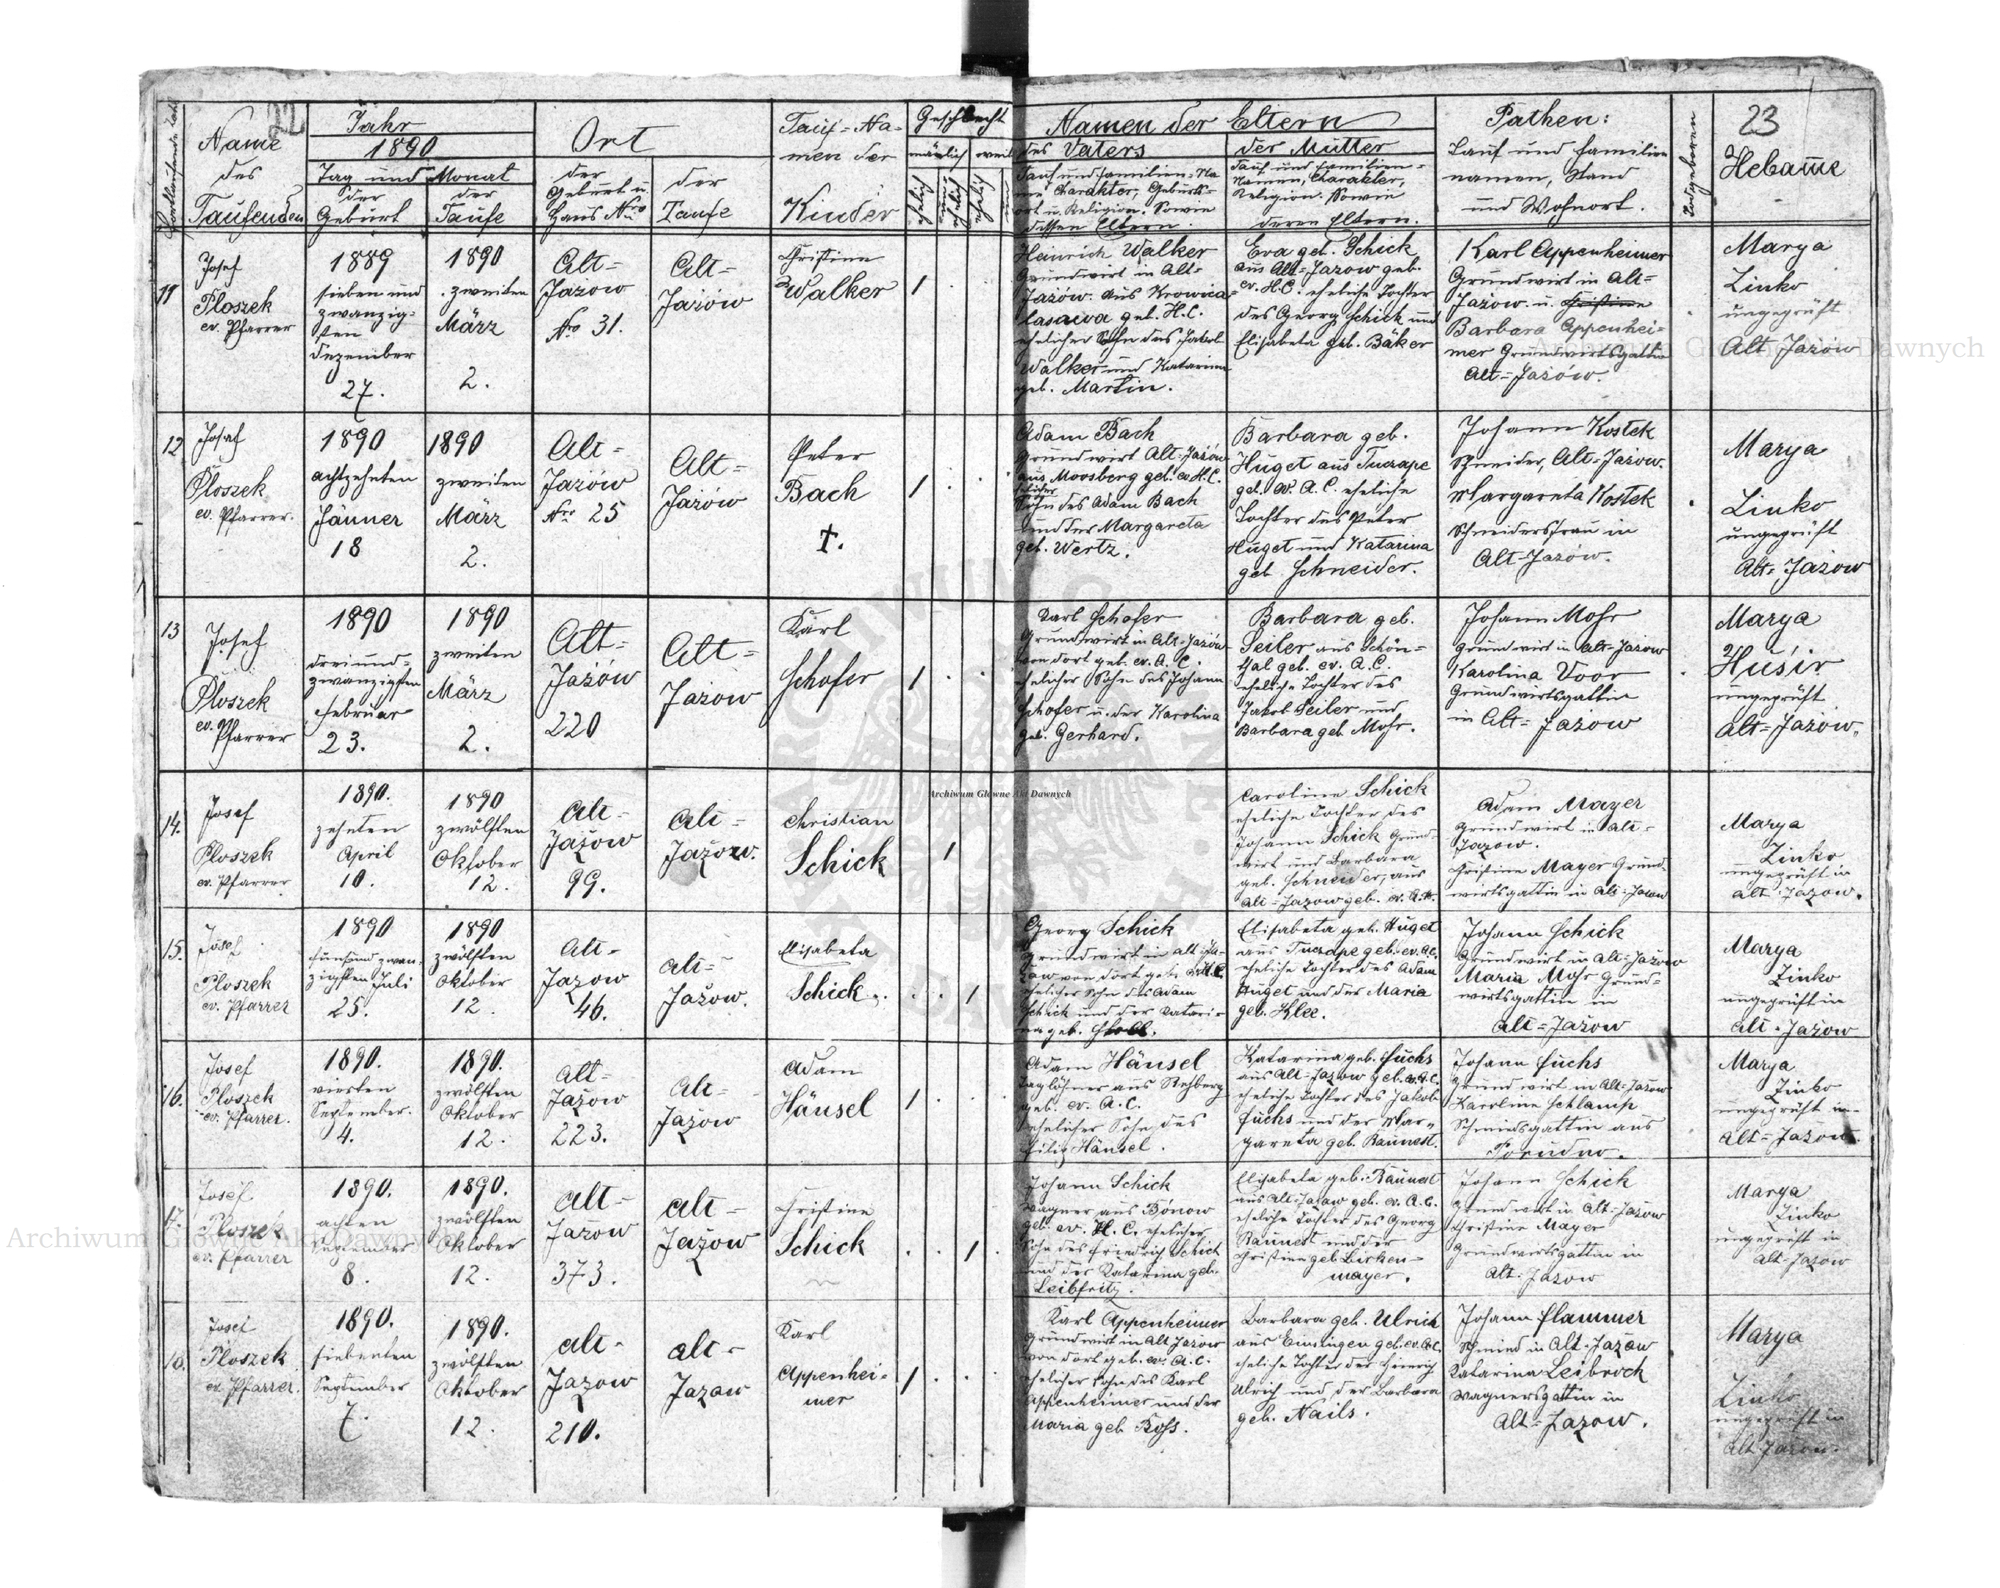 22
Name
des
Taufenden
Jahr
1890
Tag und Monat
der
Geburt
der
Taufe
Ort
der
Geburt u.
Haus Nro
der
Taufe
Tauf-Na-
men der
Kinder
Geschlecht
männlich
ehelich
ehelich
Namen der Eltern
des Vaters
Tauf und Familien-Na-
me Charakter, Geburts-
ort u. Religion. Sowie
dessen Eltern.
der Mutter
Tauf und Familien-
Namen, Charakter,
Religion. Sowie
deren Eltern.
Pathen:
Tauf und Familien
namen, Stand
und Wohnort.
Todtgeboren
23
Hebamme
11
Josef
Ploszek
ev. Pfarrer
1889
sieben und
zwanzig-
sten
Dezember
27.
1890
zweiten
März
2.
Alt-
Jazow
Nro 31.
Alt-
Jażów
Christine
Walker
1
Heinrich Walker
Grundwirt in Alt-
Jażów. aus Krowica
lasowa geb. H.C.
ehelicher Sohn des Jakob
Walker und Katarina
geb. Martin.
Eva geb. Schick
aus Alt-Jazow geb.
ev. H.C. eheliche Tochter
des Georg Schick und
Elisabeta geb. Bäker
Karl Appenheimer
Grundwirt in Alt-
Jażow u. Christine
Barbara Appenhei-
mer Grundwirtsgattin
Alt-Jażów.
Marya
Zinko
ungeprüft
Alt Jażów
12
Josef
Ploszek
ev. Pfarrer.
1890
achtzehnten
Jänner
18
1890
zweiten
März
2.
Alt-
Jażów
Nro 25
Alt-
Jażów
Peter
Bach
†.
1
Adam Bach
Grundwirt Alt-Jażów
aus Moosberg geb. ev. H.C.
ehelicher
Sohn des Adam Bach
und der Margareta
geb. Wertz.
Barbara geb.
Huget aus Tucrape
geb. ev. A.C. eheliche
Tochter des Peter
Huget und Katarina
geb. Schneider.
Johann Kostek
Schneider, Alt-Jażow.
Margareta Kostek
Schneidersfrau in
Alt-Jażów.
Marya
Zinko
ungeprüft
Alt-Jażow
13
Josef
Ploszek
ev. Pfarrer
1890
dreiund-
zwanzigsten
Februar
23.
1890
zweiten
März
2.
Alt-
Jażów
220
Alt-
Jażow
Karl
Schofer
1
Karl Schofer
Grundwirt in Alt-Jażów
von dort geb. ev. A.C.
ehelicher Sohn des Johann
Schofer u. der Karolina
geb. Gerhard.
Barbara geb.
Seiler aus Schön-
thal geb. ev. A.C.
eheliche Tochter des
Jakob Seiler und
Barbara geb. Mohr.
Johann Mohr
Grundwirt in Alt-Jażow
Karolina Voor
Grundwirtsgattin
in Alt-Jazow
Marya
Huśir
ungeprüft
Alt-Jażów.
14.
Josef
Ploszek
ev. Pfarrer
1890.
zehnten
April
10.
1890
zwölften
Oktober
12.
Alt-
Jażow
99.
Alt-
Jażow.
Christian
Schick
1
Caroline Schick
eheliche Tochter des
Johann Schick Grund-
wirt und Barbara
geb. Schneider, aus
Alt-Jazow geb. ev. A.C.
Adam Mayer
Grundwirt in Alt-
Jazow.
Christine Mayer Grund-
wirtsgattin in Alt-Jazow
Marya
Zinko
ungeprüft in
Alt-Jazow.
15.
Josef
Ploszek
ev. Pfarrer
1890
fünfund zwan-
zigsten Juli
25.
1890
zwölften
Oktober
12.
Alt-
Jazow
46.
Alt-
Jażow.
Elisabeta
Schick
1
Georg Schick
Grundwirt in Alt-Ja-
zow von dort geb. H.C.
ehelicher Sohn des Adam
Schick und der Katari-
na geb.
Elisabeta geb. Huget
aus Tucrape geb. ev. A.C.
eheliche Tochter des Adam
Huget und der Maria
geb. Klee.
Johann Schick
Grundwirt in Alt-Jazow
Maria Mohr Grund-
wirtsgattin in
Alt-Jażow
Marya
Zinko
ungeprüft in
Alt-Jażow
16.
Josef
Ploszek
ev. Pfarrer.
1890.
vierten
September.
4.
1890.
zwölften
Oktober
12.
Alt-
Jazow
223.
Alt-
Jażow
Adam
Hänsel
1
Adam Hänsel
Taglöhner aus Rehberg
geb. ev. A.C.
ehelicher Sohn des
Filip Hänsel.
Katarina geb. Fuchs
aus Alt-Jazow geb. ev. A.C.
eheliche Tochter des Jakob
Fuchs und der Mar-
gareta geb. Raunest.
Johann Fuchs
Grundwirt in Alt-Jazow
Karoline Schlamp
Schmiedsgattin aus
Porudno.
Marya
Zinko
ungeprüft in
Alt-Jażow.
17.
Josef
Ploszek
ev. Pfarrer
1890.
achten
September
8.
1890.
zwölften
Oktober
12.
Alt-
Jażow
373.
Alt-
Jażow
Christine
Schick
1
Johann Schick
Wagner aus Bonow
geb. ev. H.C. ehelicher
Sohn des Friedrich Schick
und der Katarina geb.
Leibfritz.
Elisabeta geb. Raunest
aus Alt-Jazow geb. ev. A.C.
eheliche Tochter des Georg
Raunest und der
Christine geb. Birken-
mayer.
Johann Schick
Grundwirt in Alt-Jażow
Christine Mayer
Grundwirtsgattin in
Alt-Jazow
Marya
Zinko
ungeprüft in
Alt-Jazow
18.
Josef
Ploszek
ev. Pfarrer.
1890.
siebenten
September
7.
1890.
zwölften
Oktober
12.
Alt-
Jazow
210.
Alt-
Jazow
Karl
Appenhei-
mer
1
Karl Appenheimer
Grundwirt in Alt Jazow
von dort geb. ev. A.C.
ehelicher Sohn des Karl
Appenheimer und der
Maria geb. Ross.
Barbara geb. Ulrich
aus Einsingen geb. ev. A.C.
eheliche Tochter der Heinrich
Ulrich und der Barbara
geb. Nails.
Johann Flammer
Schmied in Alt-Jażow
Katarina Leibrock
Wagnersgattin in
Alt-Jazow.
Marya
Zinko
ungeprüft in
Alt Jazow.
Archiwum Główne Akt Dawnych
Archiwum Główne Akt Dawnych
Archiwum Główne Akt Dawnych